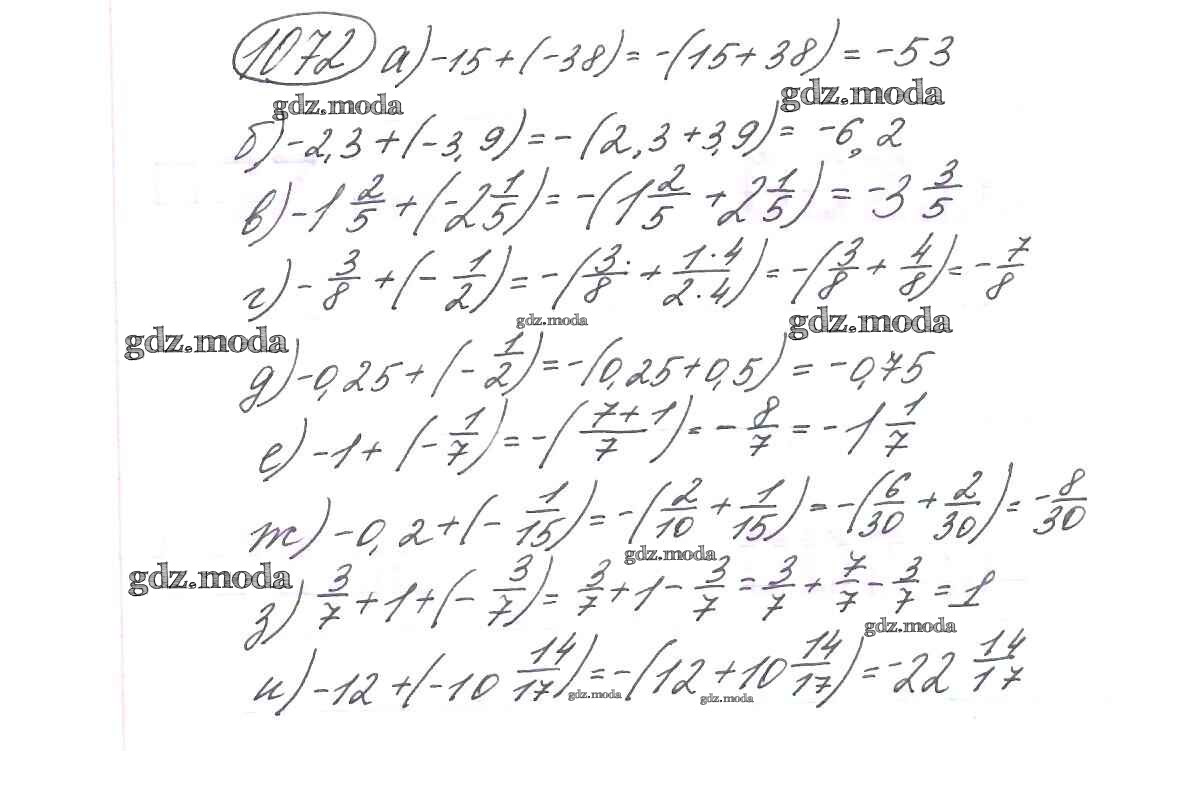 1072 а) -15 + (-38) = -(15 + 38) = -53
gdz.moda gdz.moda
б) -2,3 + (-3,9) = -(2,3 + 3,9) = -6,2
в) -1 2/5 + (-2 1/5) = -(1 2/5 + 2 1/5) = -3 3/5
г) -3/8 + (-1/2) = -(3·/8 + 1·4/2·4) = -(3/8 + 4/8) = -7/8
gdz.moda gdz.moda gdz.moda
д) -0,25 + (-1/2) = -(0,25 + 0,5) = -0,75
е) -1 + (-1/7) = -(7+1/7) = -8/7 = -1 1/7
ж) -0,2 + (-1/15) = -(2/10 + 1/15) = -(6/30 + 2/30) = -8/30
gdz.moda gdz.moda
з) 3/7 + 1 + (-3/7) = 3/7 + 1 - 3/7 = 3/7 + 7/7 - 3/7 = 1
gdz.moda
и) -12 + (-10 14/17) = -(12 + 10 14/17) = -22 14/17
gdz.moda gdz.moda